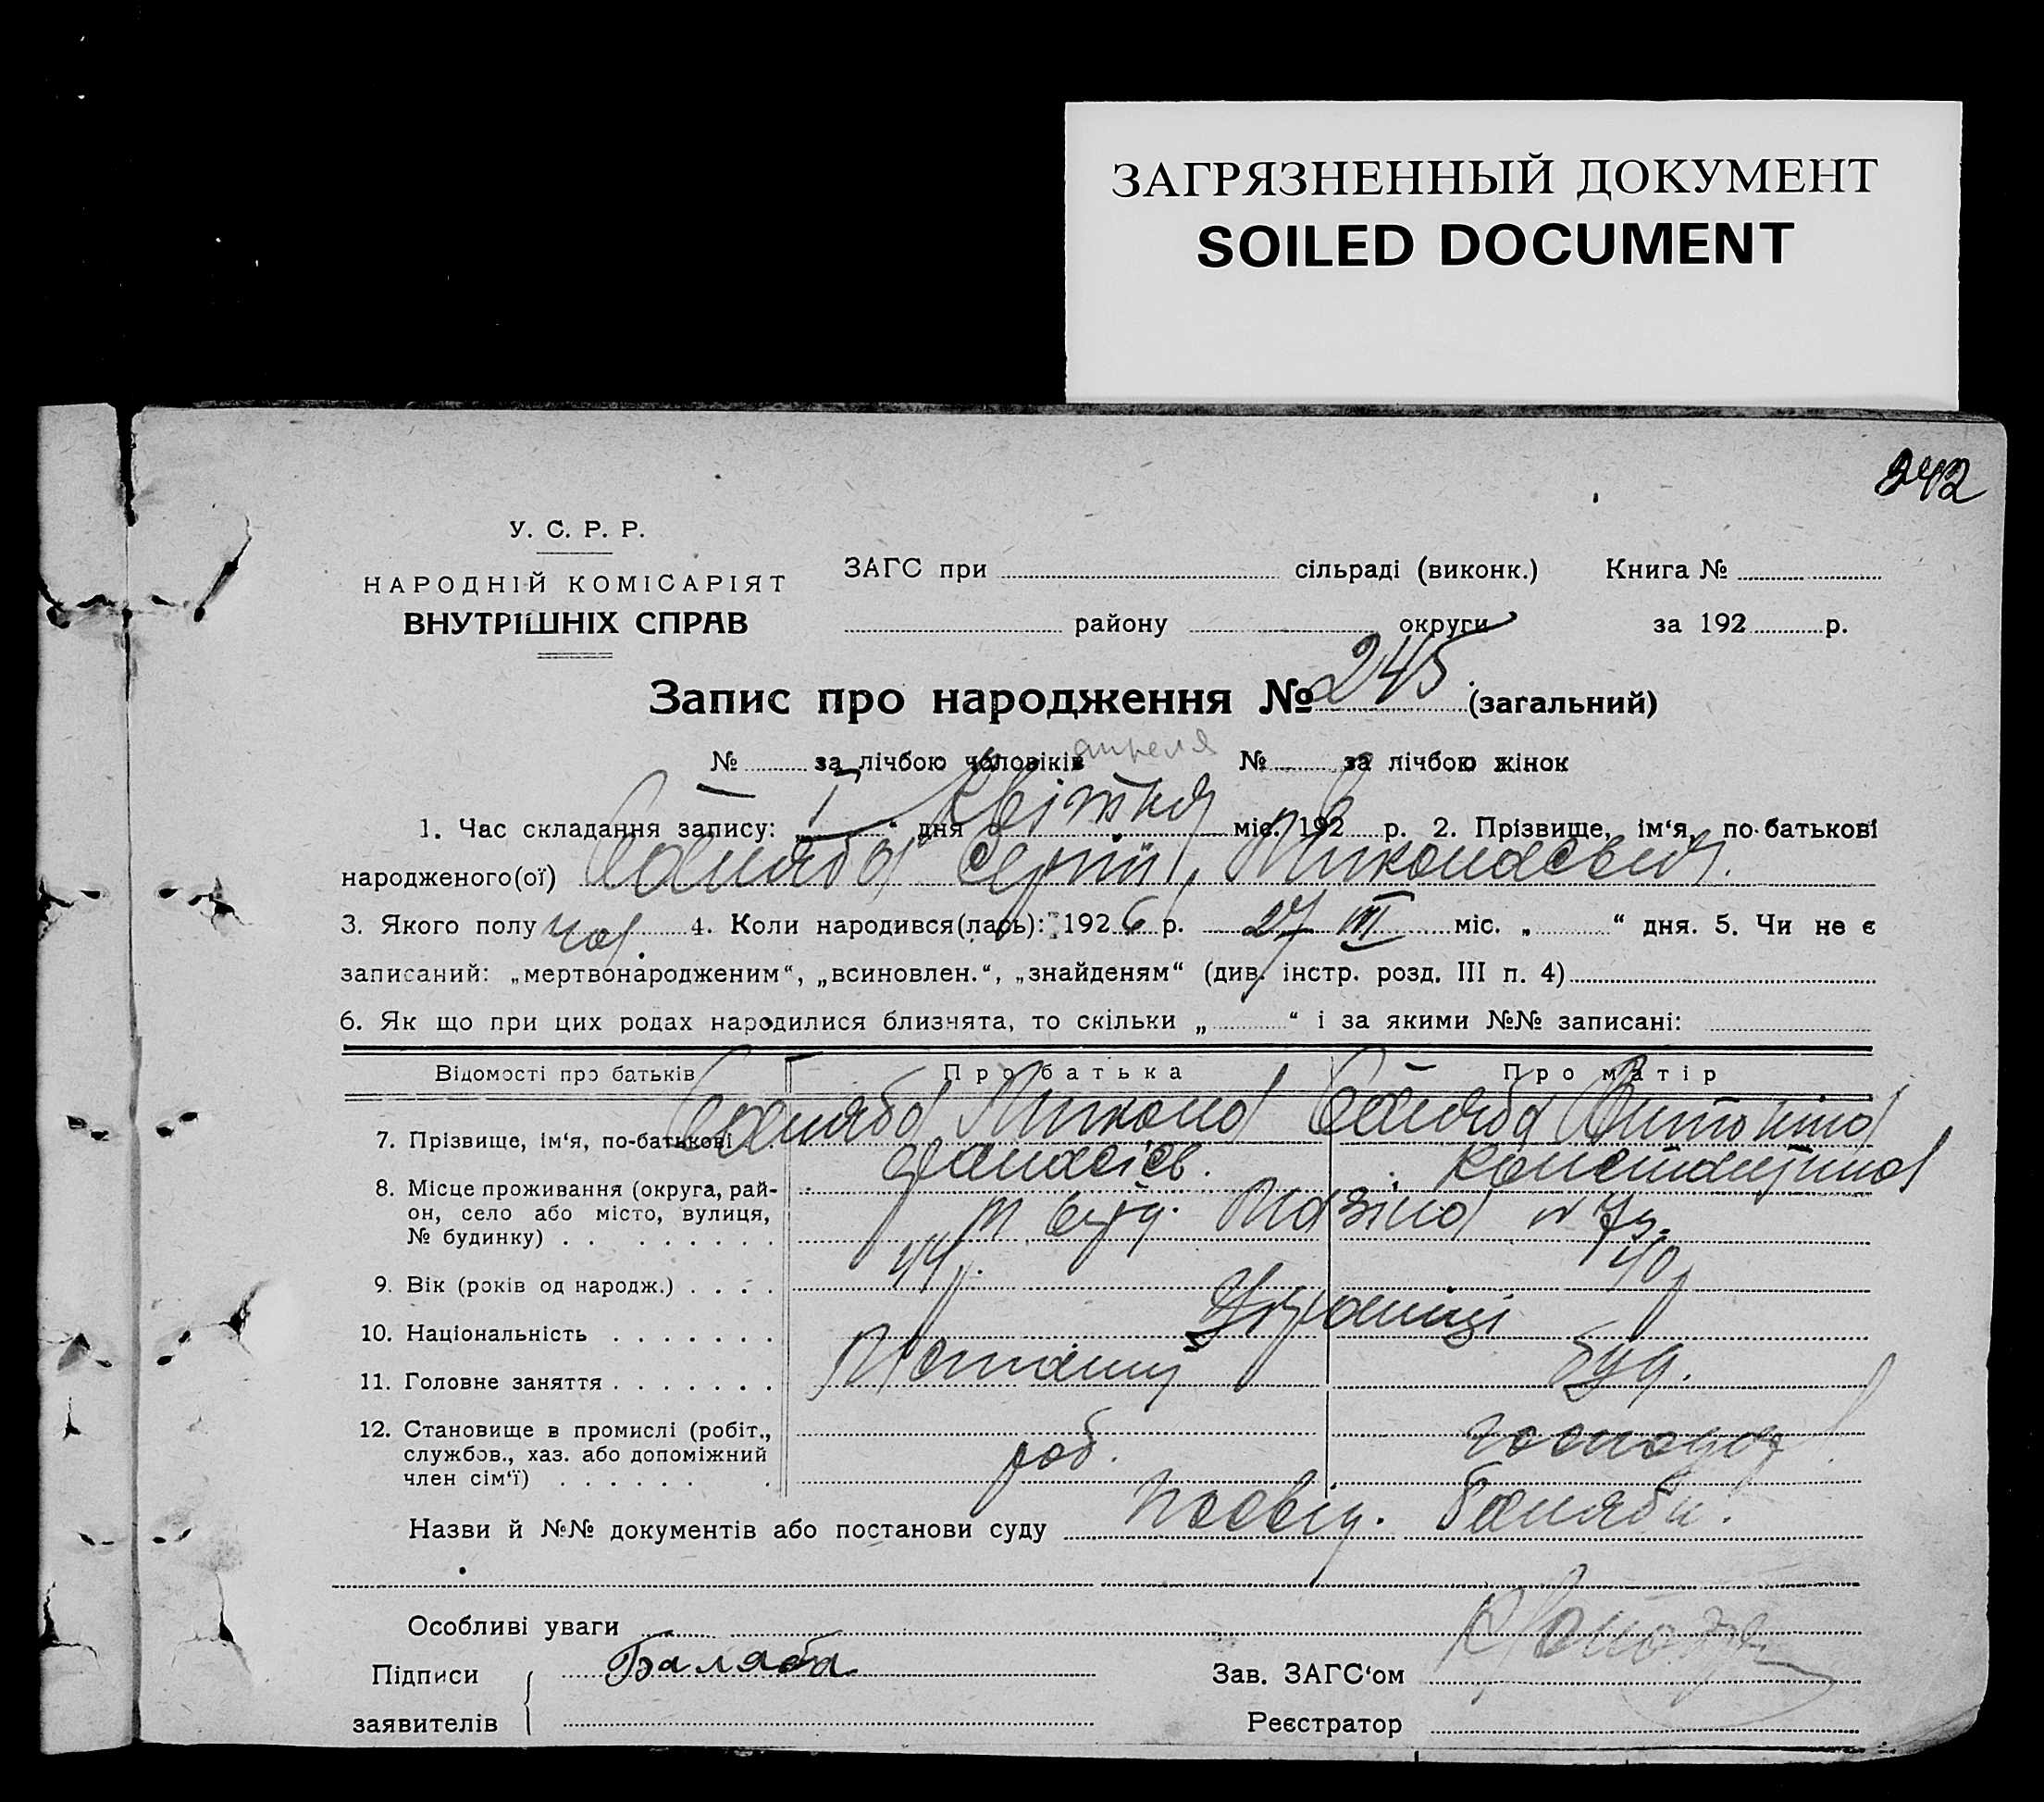 ЗАГРЯЗНЕННЫЙ ДОКУМЕНТ
SOILED DOCUMENT
242
У. С. Р. Р.
НАРОДНІЙ КОМІСАРІЯТ
ВНУТРІШНІХ СПРАВ
ЗАГС при сільраді (виконк.) Книга №
району округи за 192 р.
Запис про народження № 245 (загальний)
№ за лічбою чоловіків апреля № за лічбою жінок
1. Час складання запису: „ “ дня Квітня міс. 192 р. 2. Прізвище, ім‘я, по-батькові
народженого(ої) Баляба Сергій, Миколаєвич.
3. Якого полу чол. 4. Коли народився(лась): 1926 р. 27 III міс. „ “ дня. 5. Чи не є
записаний: „мертвонародженим“, „всиновлен.“, „знайденям“ (див. інстр. розд. III п. 4)
6. Як що при цих родах народилися близнята, то скільки „ “ і за якими №№ записані:
Відомості про батьків Про батька Про матір
7. Прізвище, ім‘я, по-батькові Баляба Микола Баляба Антоніна
8. Місце проживання (округа, рай-
он, село або місто, вулиця,
№ будинку)
9. Вік (років од народж.) 44 р. 40 р
10. Національність Українці
11. Головне заняття
12. Становище в промислі (робіт.,
службов., хаз. або допоміжний
член сім‘ї) роб.
Назви й №№ документів або постанови суду Посвід. Баляби.
Особливі уваги
Підписи Баляба Зав. ЗАГС‘ом
заявителів Реєстратор